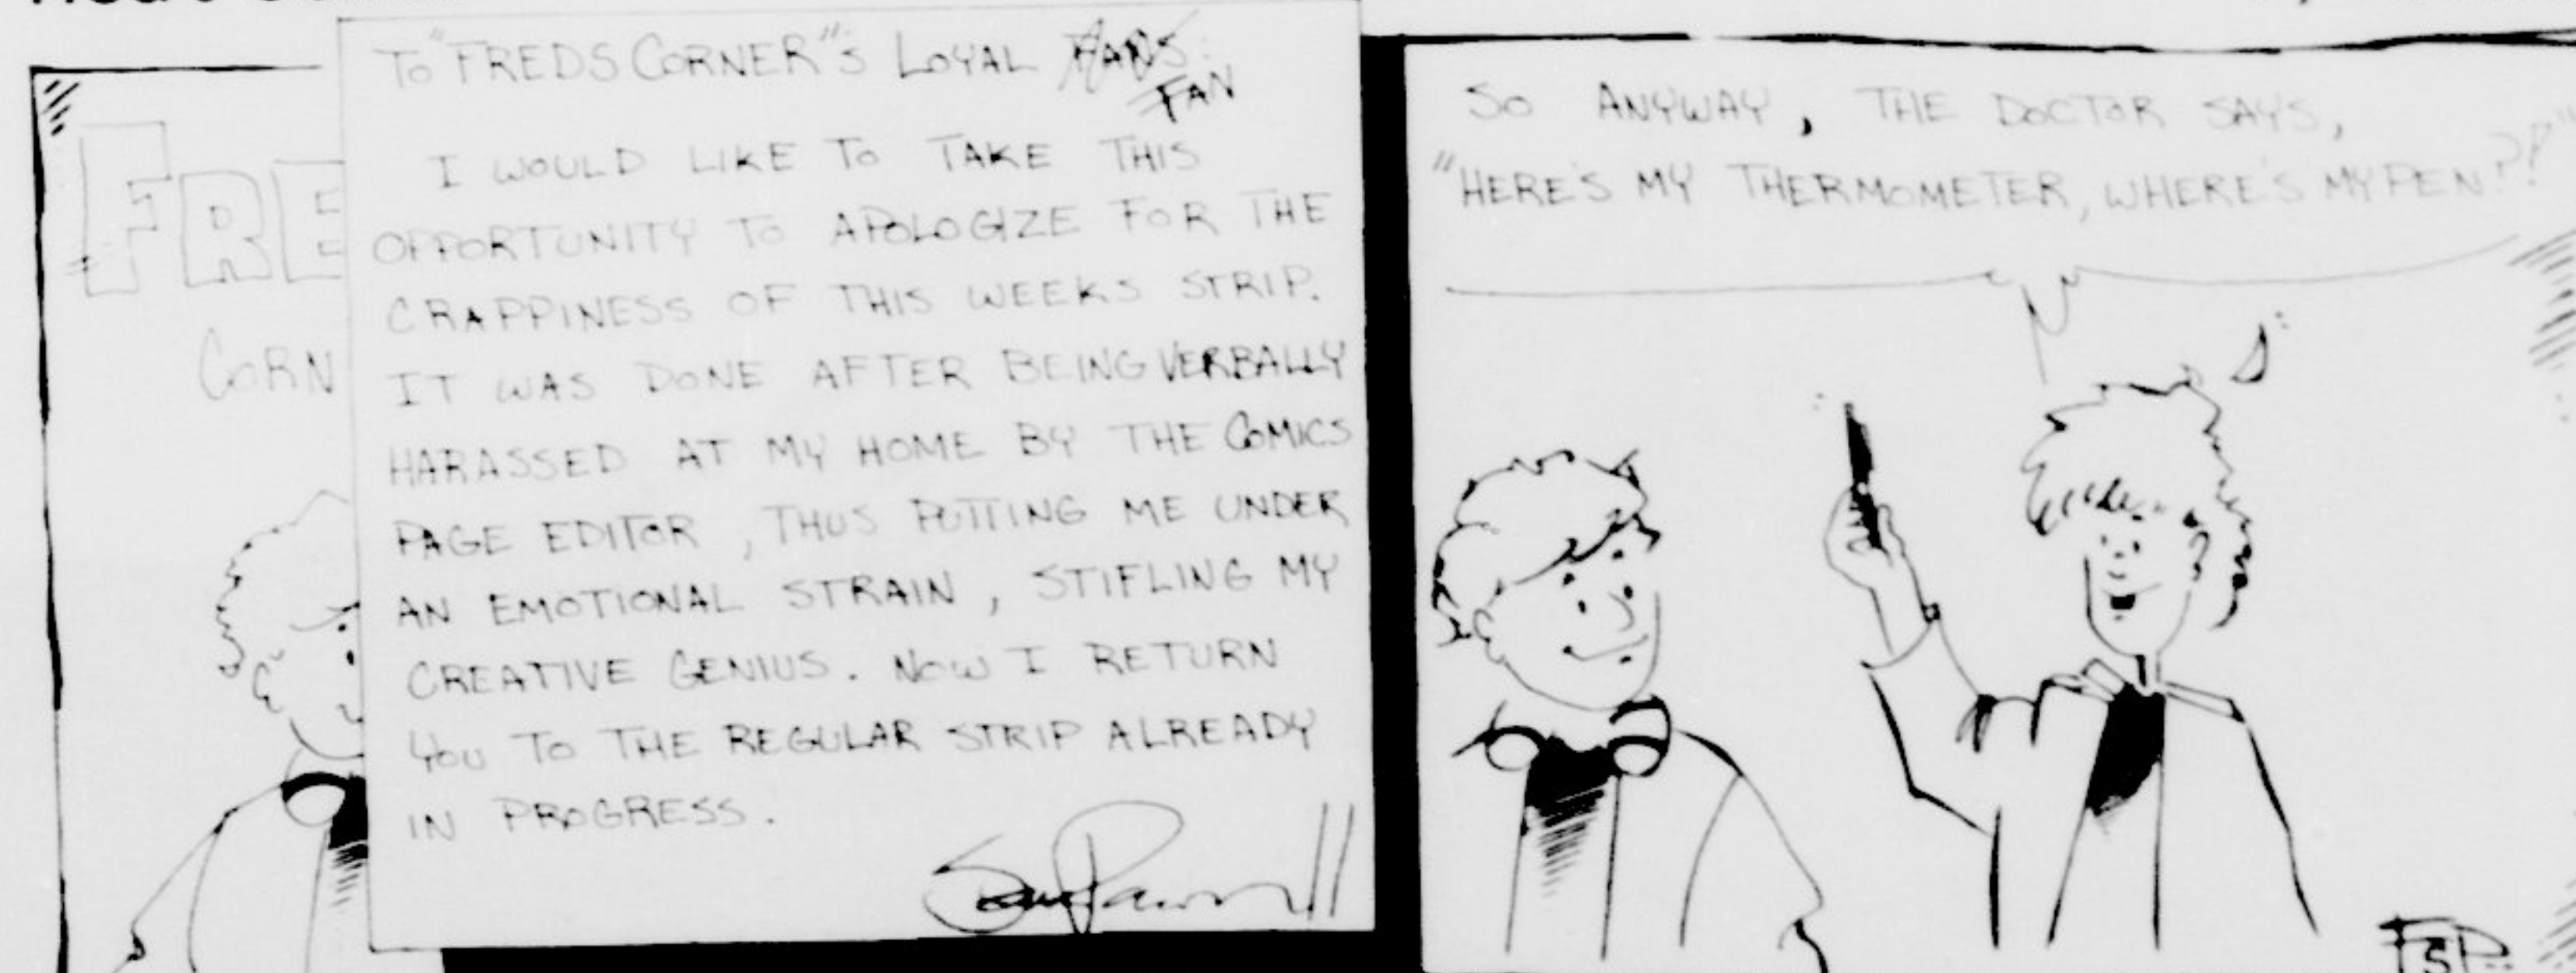 FRE
CORN
TO "FREDS CORNER"'S LOYAL FANS
FAN
I WOULD LIKE TO TAKE THIS
OPPORTUNITY TO APOLOGIZE FOR THE
CRAPPINESS OF THIS WEEKS STRIP.
IT WAS DONE AFTER BEING VERBALLY
HARASSED AT MY HOME BY THE COMICS
PAGE EDITOR, THUS PUTTING ME UNDER
AN EMOTIONAL STRAIN, STIFLING MY
CREATIVE GENIUS. NOW I RETURN
YOU TO THE REGULAR STRIP ALREADY
IN PROGRESS.
SO ANYWAY, THE DOCTOR SAYS,
"HERE'S MY THERMOMETER, WHERE'S MY PEN?!"
FSP